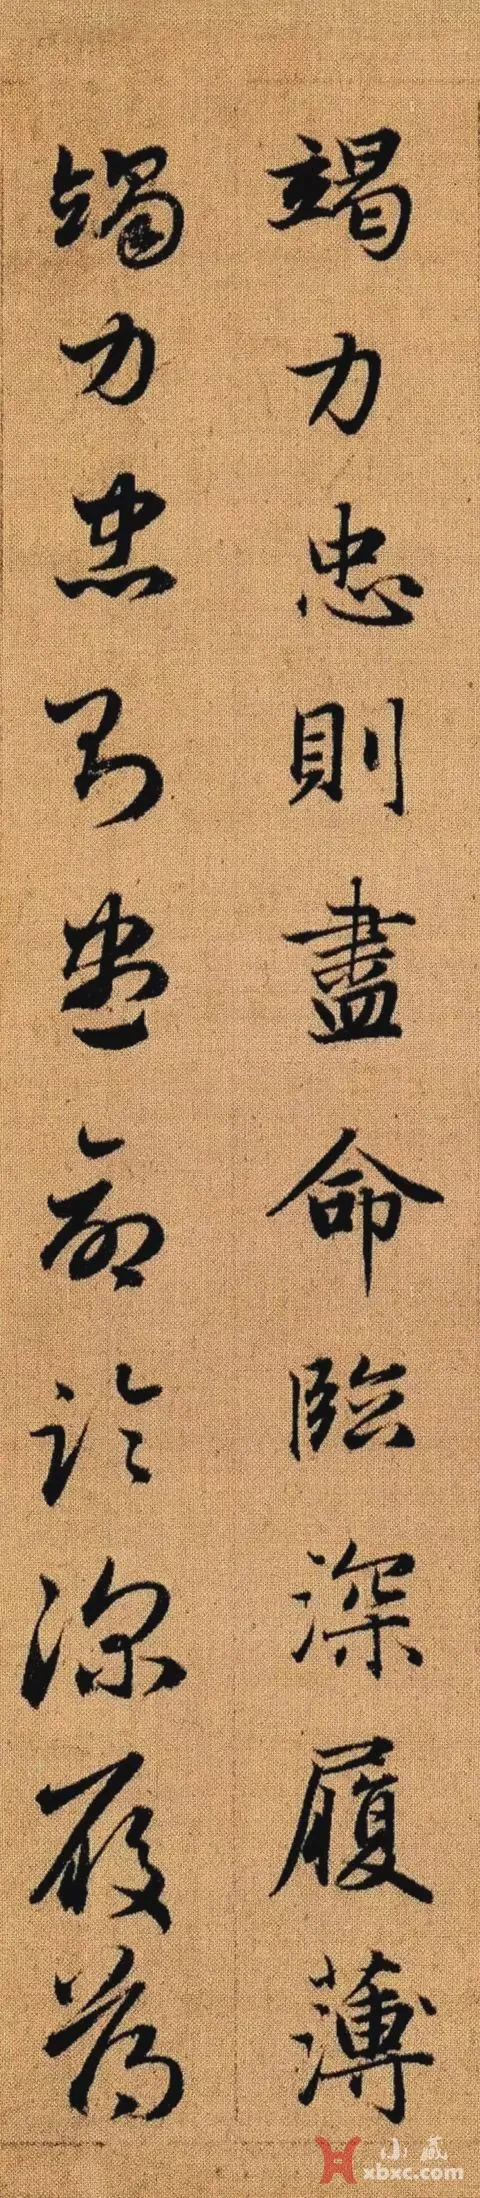 竭力忠則盡命臨深履薄
竭力忠則盡命臨深履薄
小藏
xbxc.com